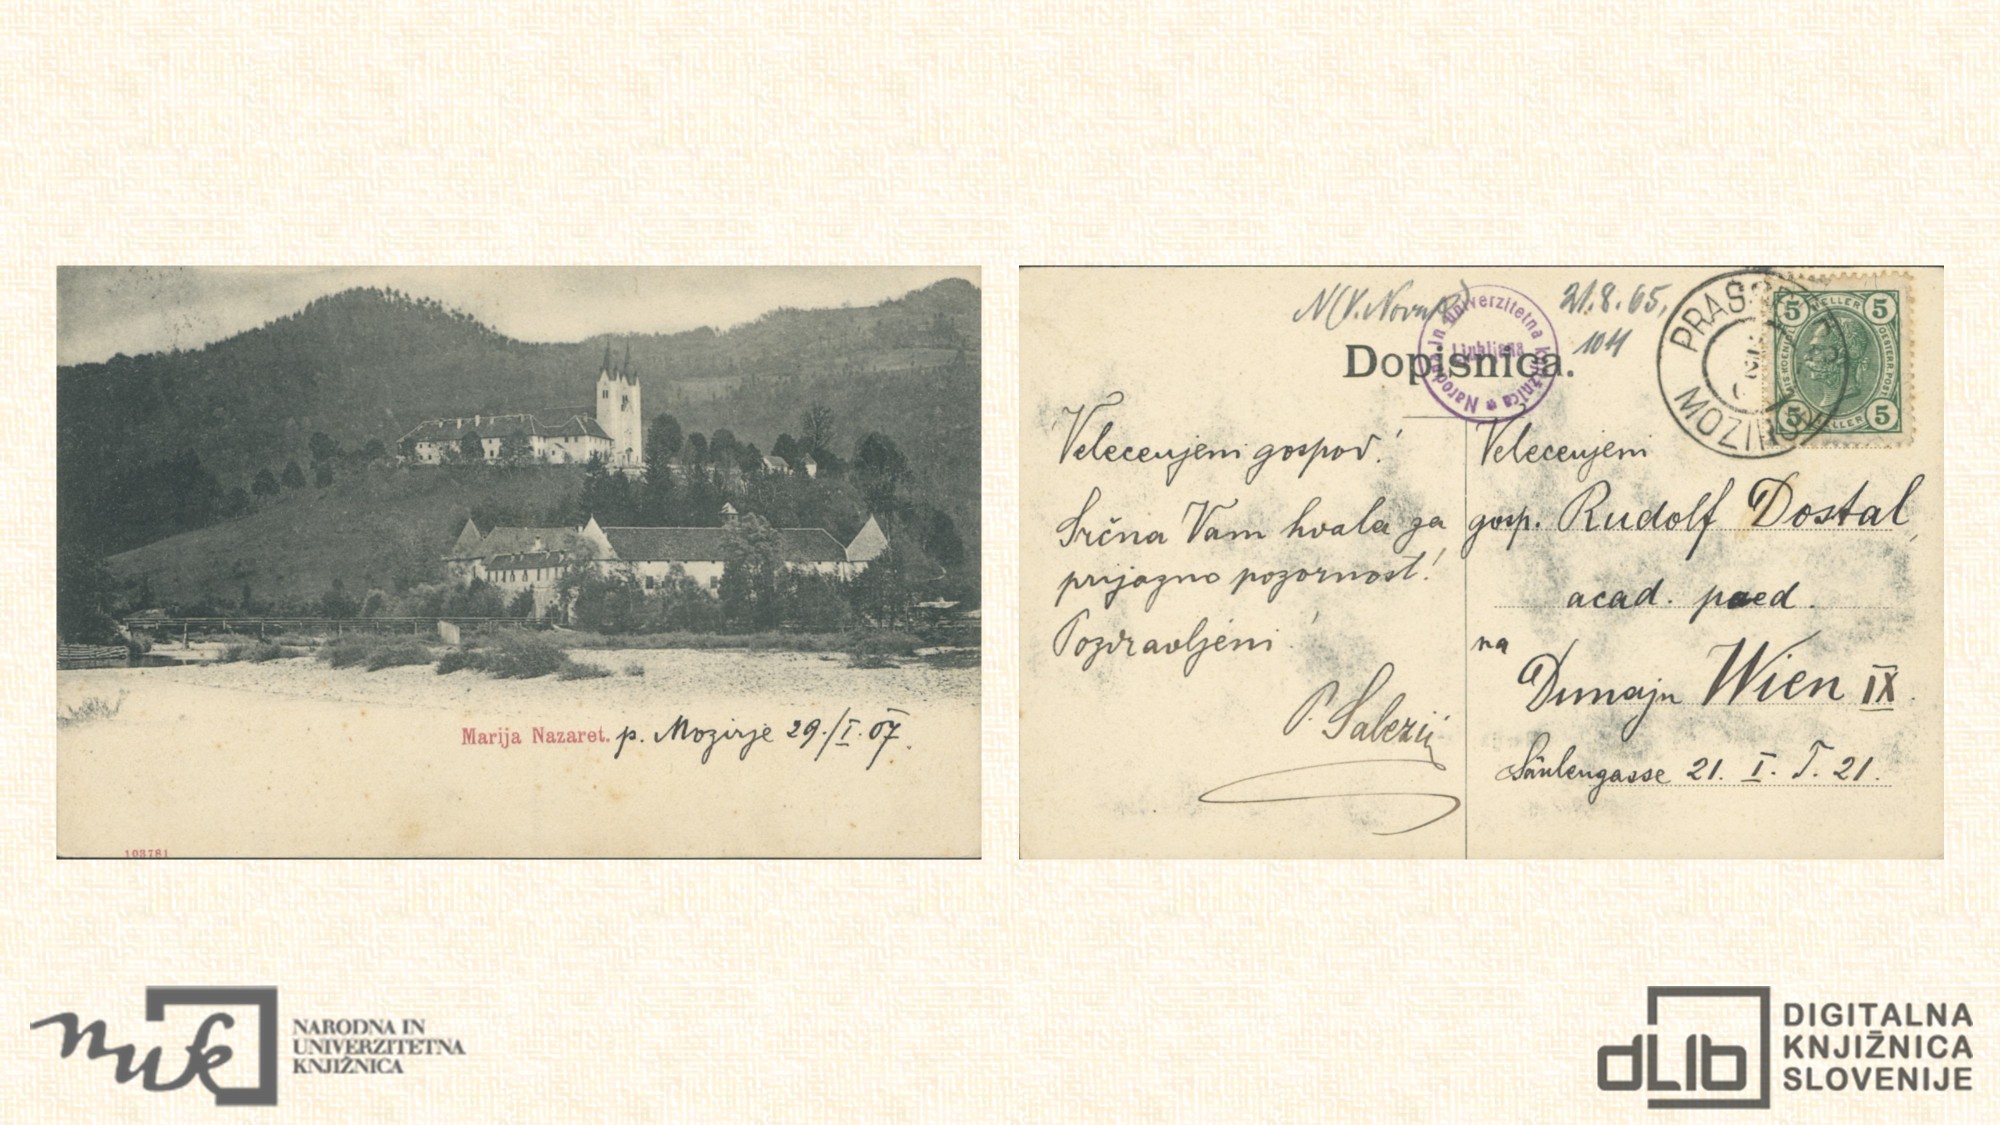 Marija Nazaret. p. Mozirje 29./I. 07.
103781
21.8.65,
1011
Dopisnica.
Narodna in univerzitetna knjižnica
Ljubljana
PRASSBERG
MOZIRJE
5 HELLER 5
5 HELLER 5
Velecenjeni gospod!
Srčna Vam hvala za
prijazno pozornost!
Pozdravljeni!
P. Salezij
Velecenjeni
gosp. Rudolf Dostal,
acad. paed.
na
Dunaju Wien IX.
Säulengasse 21. I. T. 21.
nuk
NARODNA IN
UNIVERZITETNA
KNJIŽNICA
dLib
DIGITALNA
KNJIŽNICA
SLOVENIJE